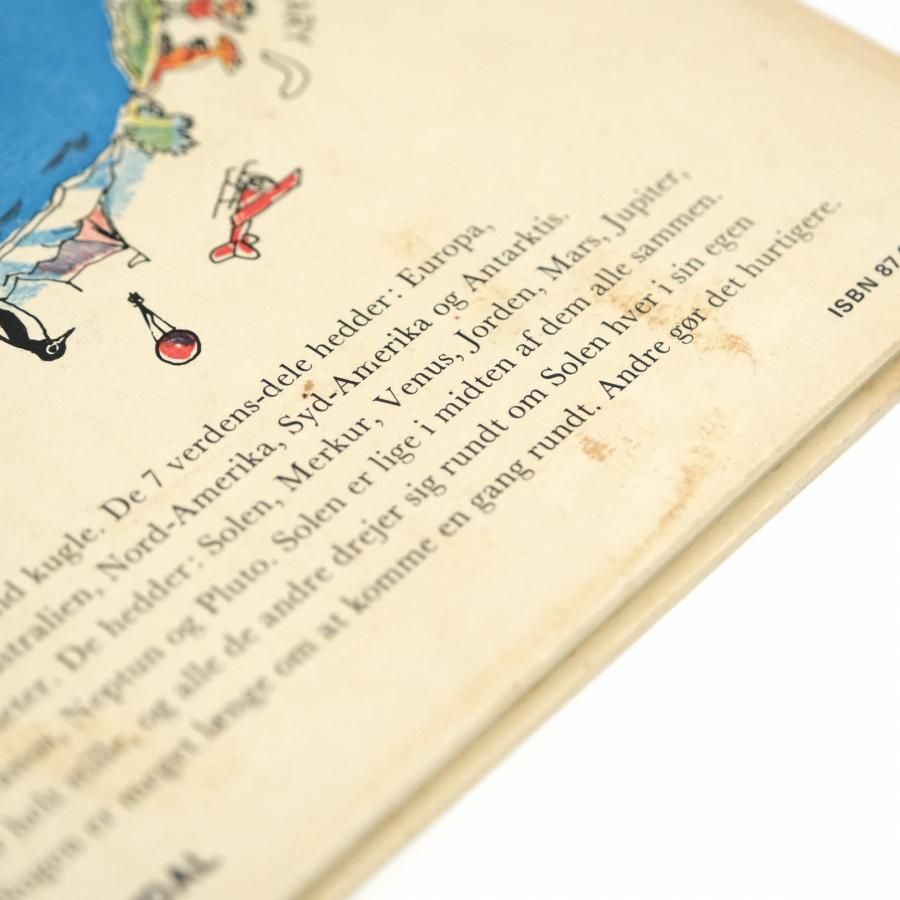 kugle. De 7 verdens-dele hedder: Europa,
Nord-Amerika, Syd-Amerika og Antarktis.
De hedder: Solen, Merkur, Venus, Jorden, Mars, Jupiter,
Neptun og Pluto. Solen er lige i midten af dem alle sammen.
helt stille, og alle de andre drejer sig rundt om Solen hver i sin egen
er meget længe om at komme en gang rundt. Andre gør det hurtigere.
ISBN 87